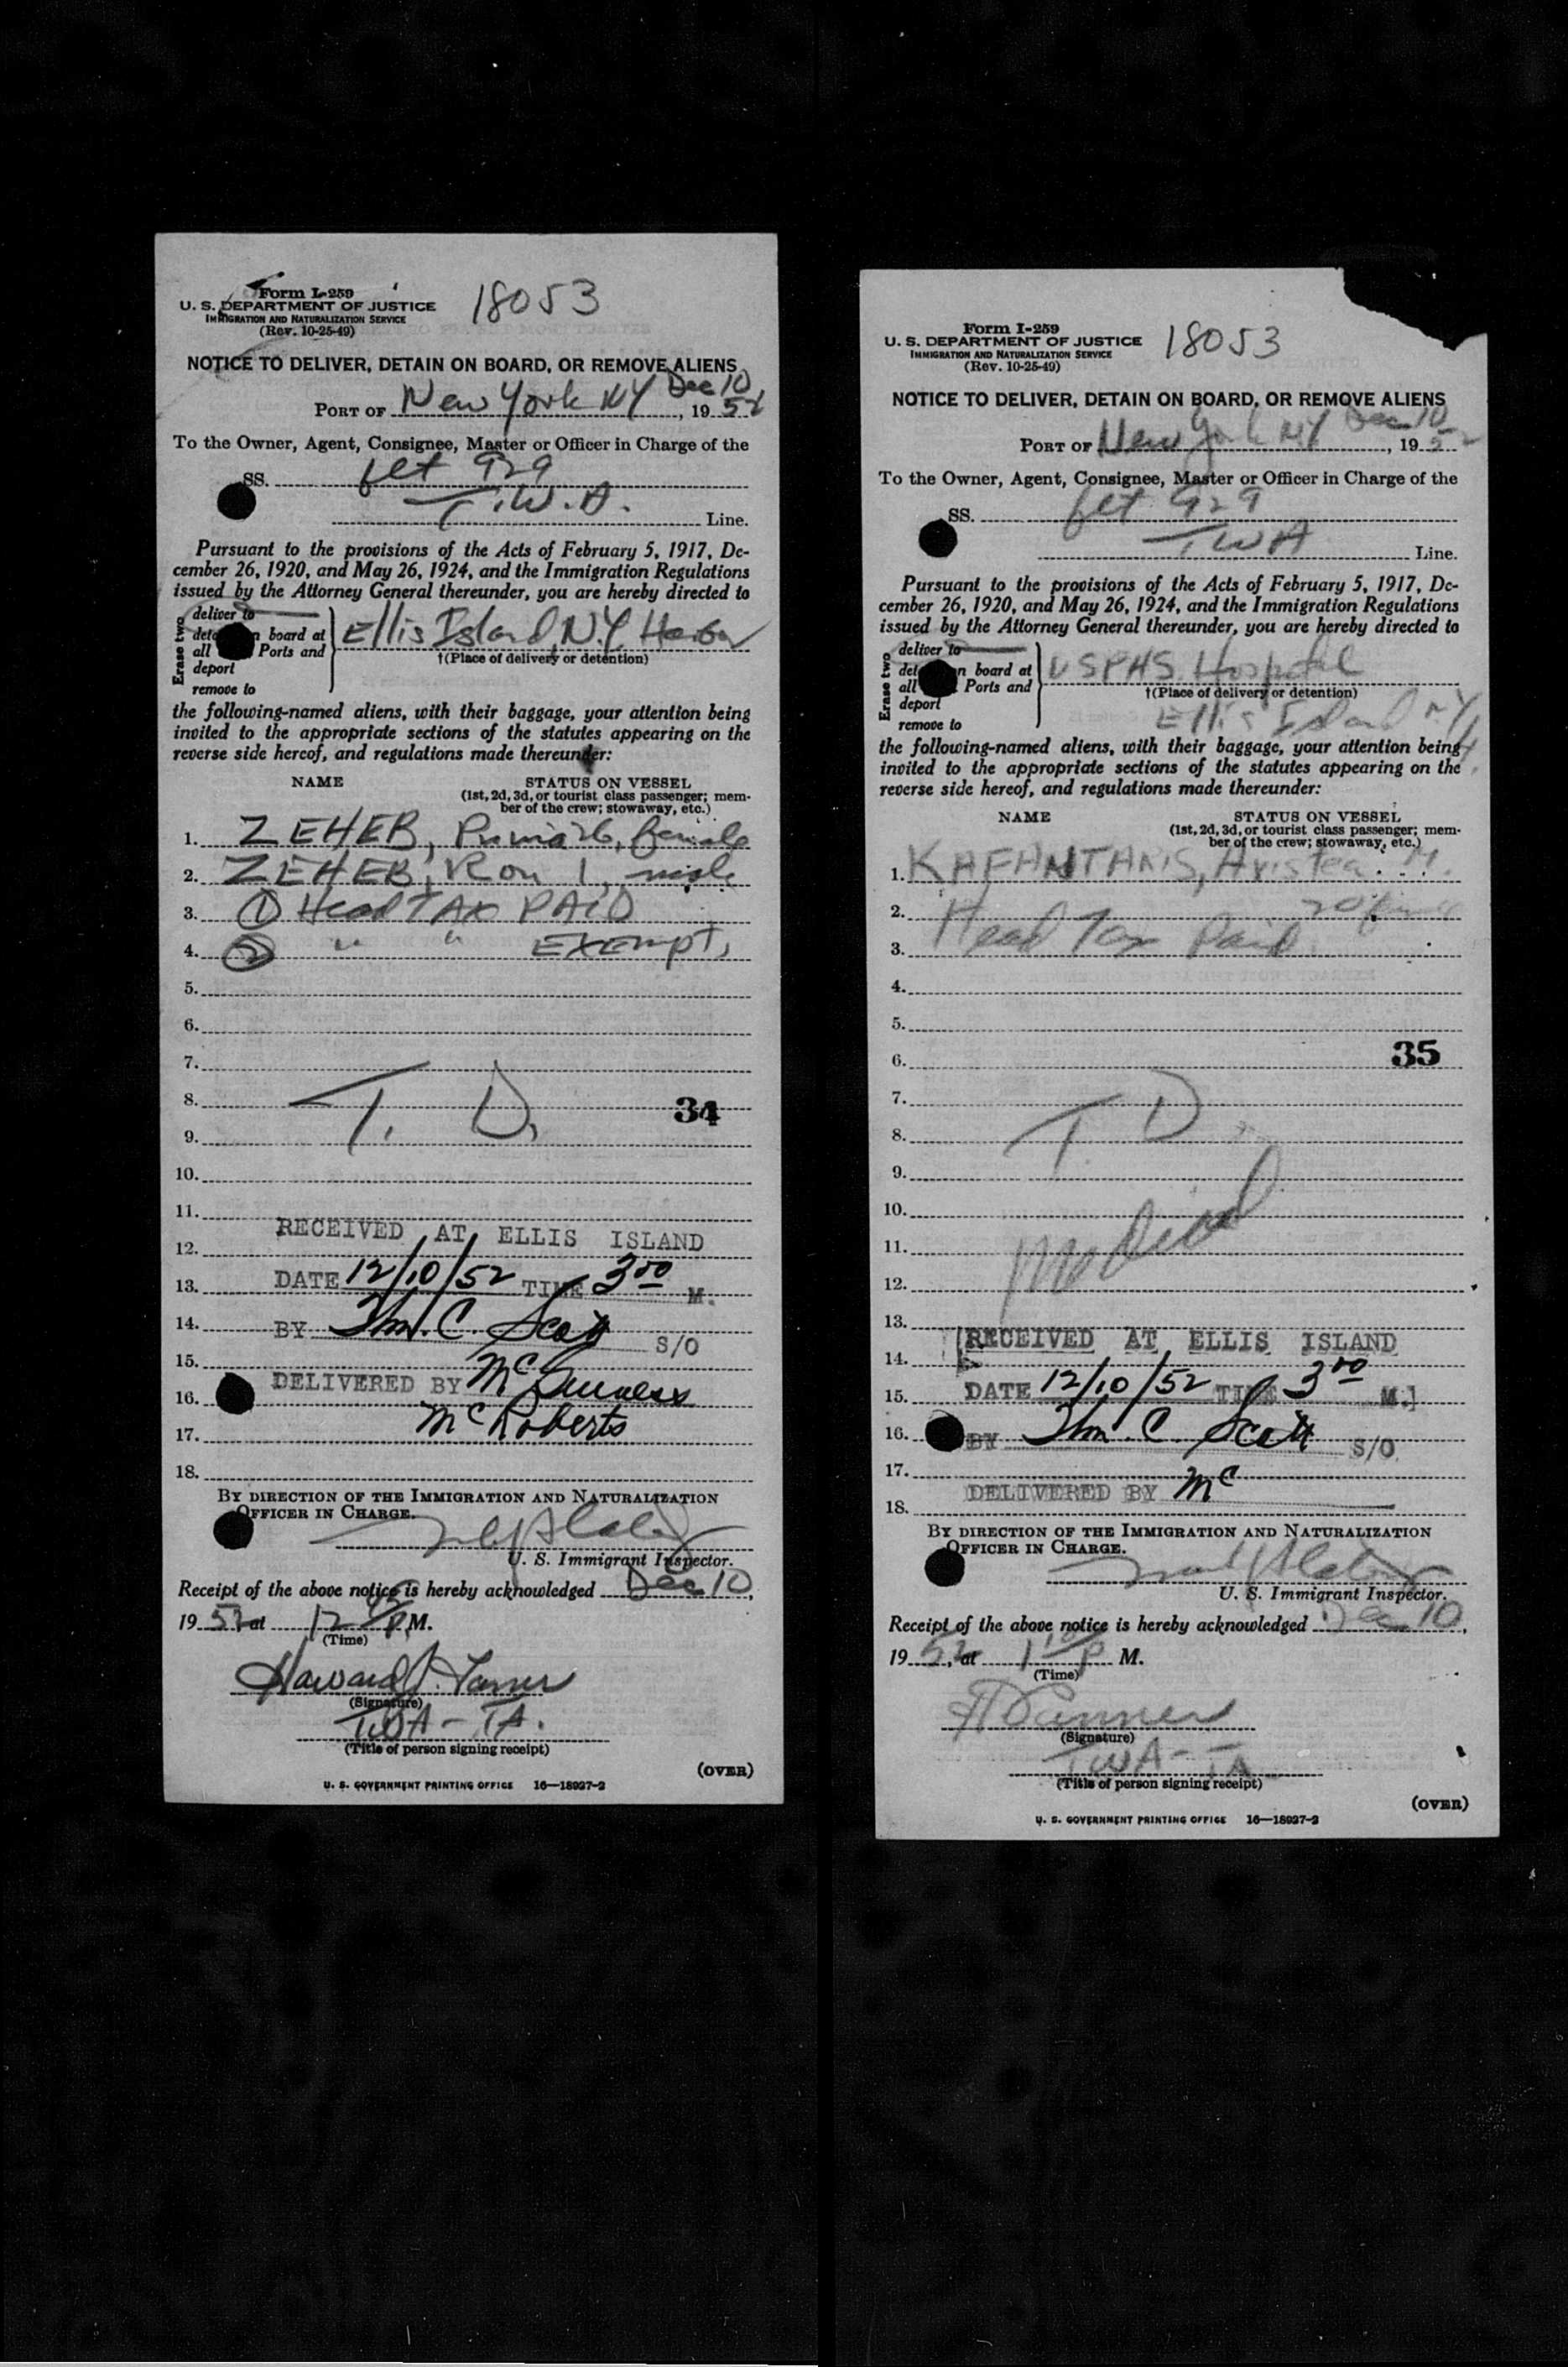 Form I-259
U. S. DEPARTMENT OF JUSTICE
IMMIGRATION AND NATURALIZATION SERVICE
(Rev. 10-25-49)
18053
NOTICE TO DELIVER, DETAIN ON BOARD, OR REMOVE ALIENS
Dec 10
PORT OF New York NY, 1952
To the Owner, Agent, Consignee, Master or Officer in Charge of the
SS. flt 929
T.W.A. Line.
Pursuant to the provisions of the Acts of February 5, 1917, De-
cember 26, 1920, and May 26, 1924, and the Immigration Regulations
issued by the Attorney General thereunder, you are hereby directed to
Erase two
deliver to
n board at
all Ports and
deport
remove to
Ellis Island, N.Y. Harbor
†(Place of delivery or detention)
the following-named aliens, with their baggage, your attention being
invited to the appropriate sections of the statutes appearing on the
reverse side hereof, and regulations made thereunder:
NAME STATUS ON VESSEL
(1st, 2d, 3d, or tourist class passenger; mem-
ber of the crew; stowaway, etc.)
1. ZEHEB, female
2. ZEHEB, Ron 1, male
3. ① Head TAX PAID
4. ② " " EXEMPT,
5.
6.
7.
8. T. D. 34
9.
10.
11.
RECEIVED AT ELLIS ISLAND
12.
13. DATE 12/10/52 TIME 3 00 M.
14. BY Thm. C. Scott S/O
15.
16. DELIVERED BY McGuness
McRoberts
17.
18.
BY DIRECTION OF THE IMMIGRATION AND NATURALIZATION
OFFICER IN CHARGE.
U. S. Immigrant Inspector.
Receipt of the above notice is hereby acknowledged Dec 10,
1952 at 12 45 P.M.
(Time)
Howard J. Tanner
(Signature)
TWA - TA.
(Title of person signing receipt)
(OVER)
U. S. GOVERNMENT PRINTING OFFICE 16—18927-2
Form I-259
U. S. DEPARTMENT OF JUSTICE
IMMIGRATION AND NATURALIZATION SERVICE
(Rev. 10-25-49)
18053
NOTICE TO DELIVER, DETAIN ON BOARD, OR REMOVE ALIENS
Dec 10
PORT OF New York NY, 1952
To the Owner, Agent, Consignee, Master or Officer in Charge of the
SS. flt 929
TWA Line.
Pursuant to the provisions of the Acts of February 5, 1917, De-
cember 26, 1920, and May 26, 1924, and the Immigration Regulations
issued by the Attorney General thereunder, you are hereby directed to
Erase two
deliver to
n board at
all Ports and
deport
remove to
USPHS Hospital
†(Place of delivery or detention)
Ellis Island NY
the following-named aliens, with their baggage, your attention being
invited to the appropriate sections of the statutes appearing on the
reverse side hereof, and regulations made thereunder:
NAME STATUS ON VESSEL
(1st, 2d, 3d, or tourist class passenger; mem-
ber of the crew; stowaway, etc.)
1. KAFANTARIS, Aristea M.
2. 20 female
3. Head Tax Paid
4.
5.
6. 35
7.
8. T. D.
9.
10.
11. Medical
12.
13.
RECEIVED AT ELLIS ISLAND
14.
15. DATE 12/10/52 TIME 3 00 M.
16. BY Thm. C. Scott S/O
17.
18. DELIVERED BY Mc
BY DIRECTION OF THE IMMIGRATION AND NATURALIZATION
OFFICER IN CHARGE.
U. S. Immigrant Inspector.
Receipt of the above notice is hereby acknowledged Dec 10,
1952, at 1 10 P M.
(Time)
H Tanner
(Signature)
TWA - TA
(Title of person signing receipt)
(OVER)
U. S. GOVERNMENT PRINTING OFFICE 16—18927-2